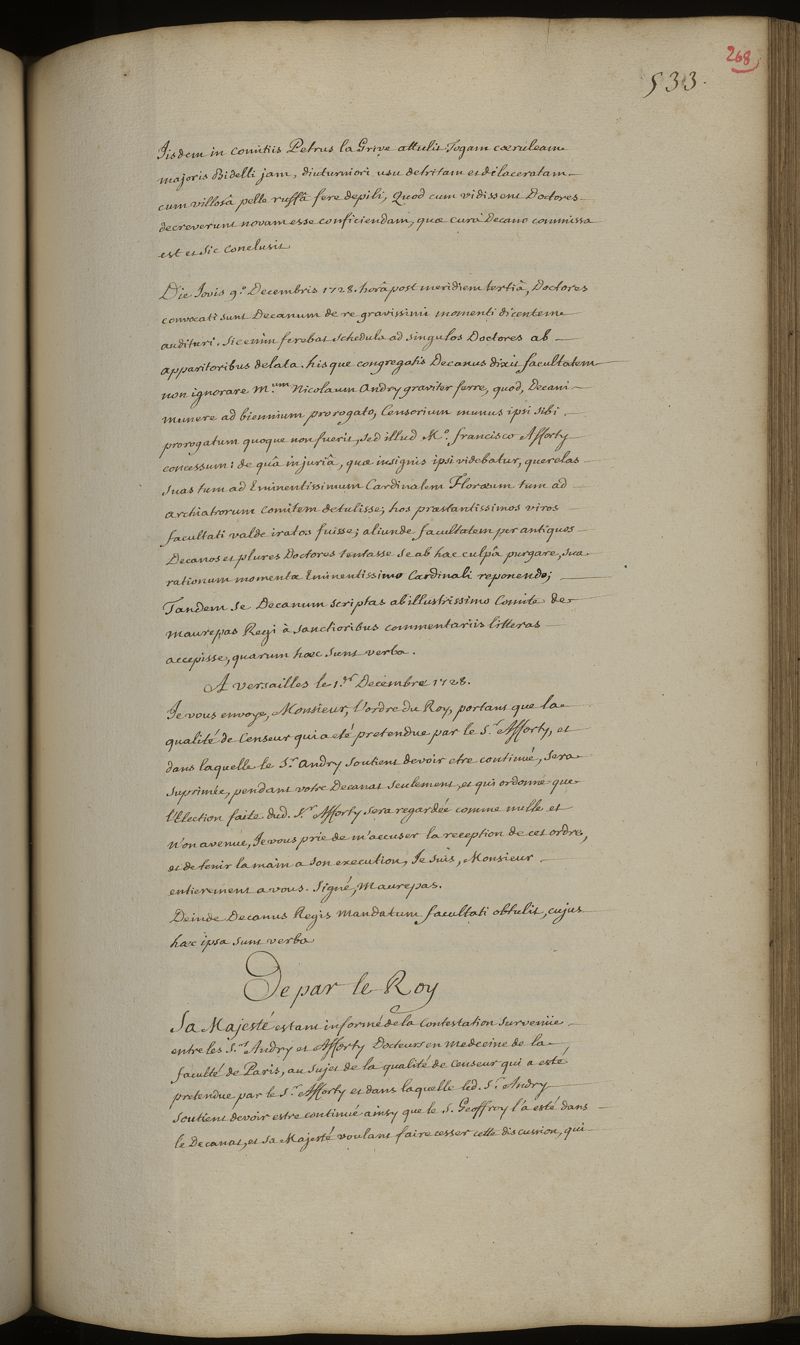 268
533.
Jisdem in Comitiis Petrus la Grive attulit Togam cœruleam
majoris Bidelli jam, diuturniori usu detritam et dilaceratam
cum villosâ pelle ruffâ fere depili, Quod cum vidissent Doctores
decreverunt novam esse conficiendam, quæ cura Decano commissa
est et sic conclusit
Die Jovis 9.ª Decembris 1728. horâ post meridiem tertiâ, Doctores
convocati sunt Decanum de re gravissimi momenti dicentem
audituri. Sic enim ferebat schedula ad singulos Doctores ab
apparitoribus delata. hisque congregatis Decanus dixit facultatem
non ignorare M.um Nicolaum Andry graviter ferre, quod, Decani
munere ad biennium prorogato, Censorium munus ipsi sibi
prorogatum quoque non fuerit, sed illud M.º francisco Afforty
concessum: de quâ injuriâ, quæ insignis ipsi videbatur, querelas
suas tum ad Eminentissimum Cardinalem Floræum tum ad
archiatrorum Comitem detulisse; hos præstantissimos viros
facultati valde iratos fuisse; aliunde facultatem per antiquos
Decanos et plures Doctores tentasse se ab hac culpâ purgare, sua
rationum momenta Eminentissimo Cardinali reponendo;
Tandem se Decanum scriptas ab illustrissimo Comite de
Maurepas Regi à Sanctioribus commentariis litteras
accepisse, quarum hæc sunt verba.
A Versailles le 1.er Decembre 1728.
Je vous envoye, Monsieur, l'ordre du Roy, portant que la
qualité de Censeur qui a eté pretendue par le S.r Afforty, et
dans laquelle le S.r Andry soutient devoir etre continué, sera
suprimée, pendant votre Decanat seulement, et qui ordonne que
l'Election faite dud. S.r Afforty sera regardée comme nulle et
n'on avenue, Je vous prie de m'accuser la reception de cet ordre,
et de tenir la main a son execution, Je suis, Monsieur
entierement a vous. Signé, Maurepas.
Deinde Decanus Regis Mandatum facultati obtulit, cujus
hæc ipsa sunt verba
De par le Roy
Sa Majesté estant informé de la Contestation survenüe
entre les S.rs Andry et Afforty Docteurs en Medecine de la
faculté de Paris, au sujet de la qualité de Censeur qui a esté
pretendue par le S.r Afforty et dans laquelle led. S.r Andry
Soutient devoir estre continué ainsy que le S. Geoffroy l'a esté dans
le Decanat, et Sa Majesté voulant faire cesser cette discussion, qui